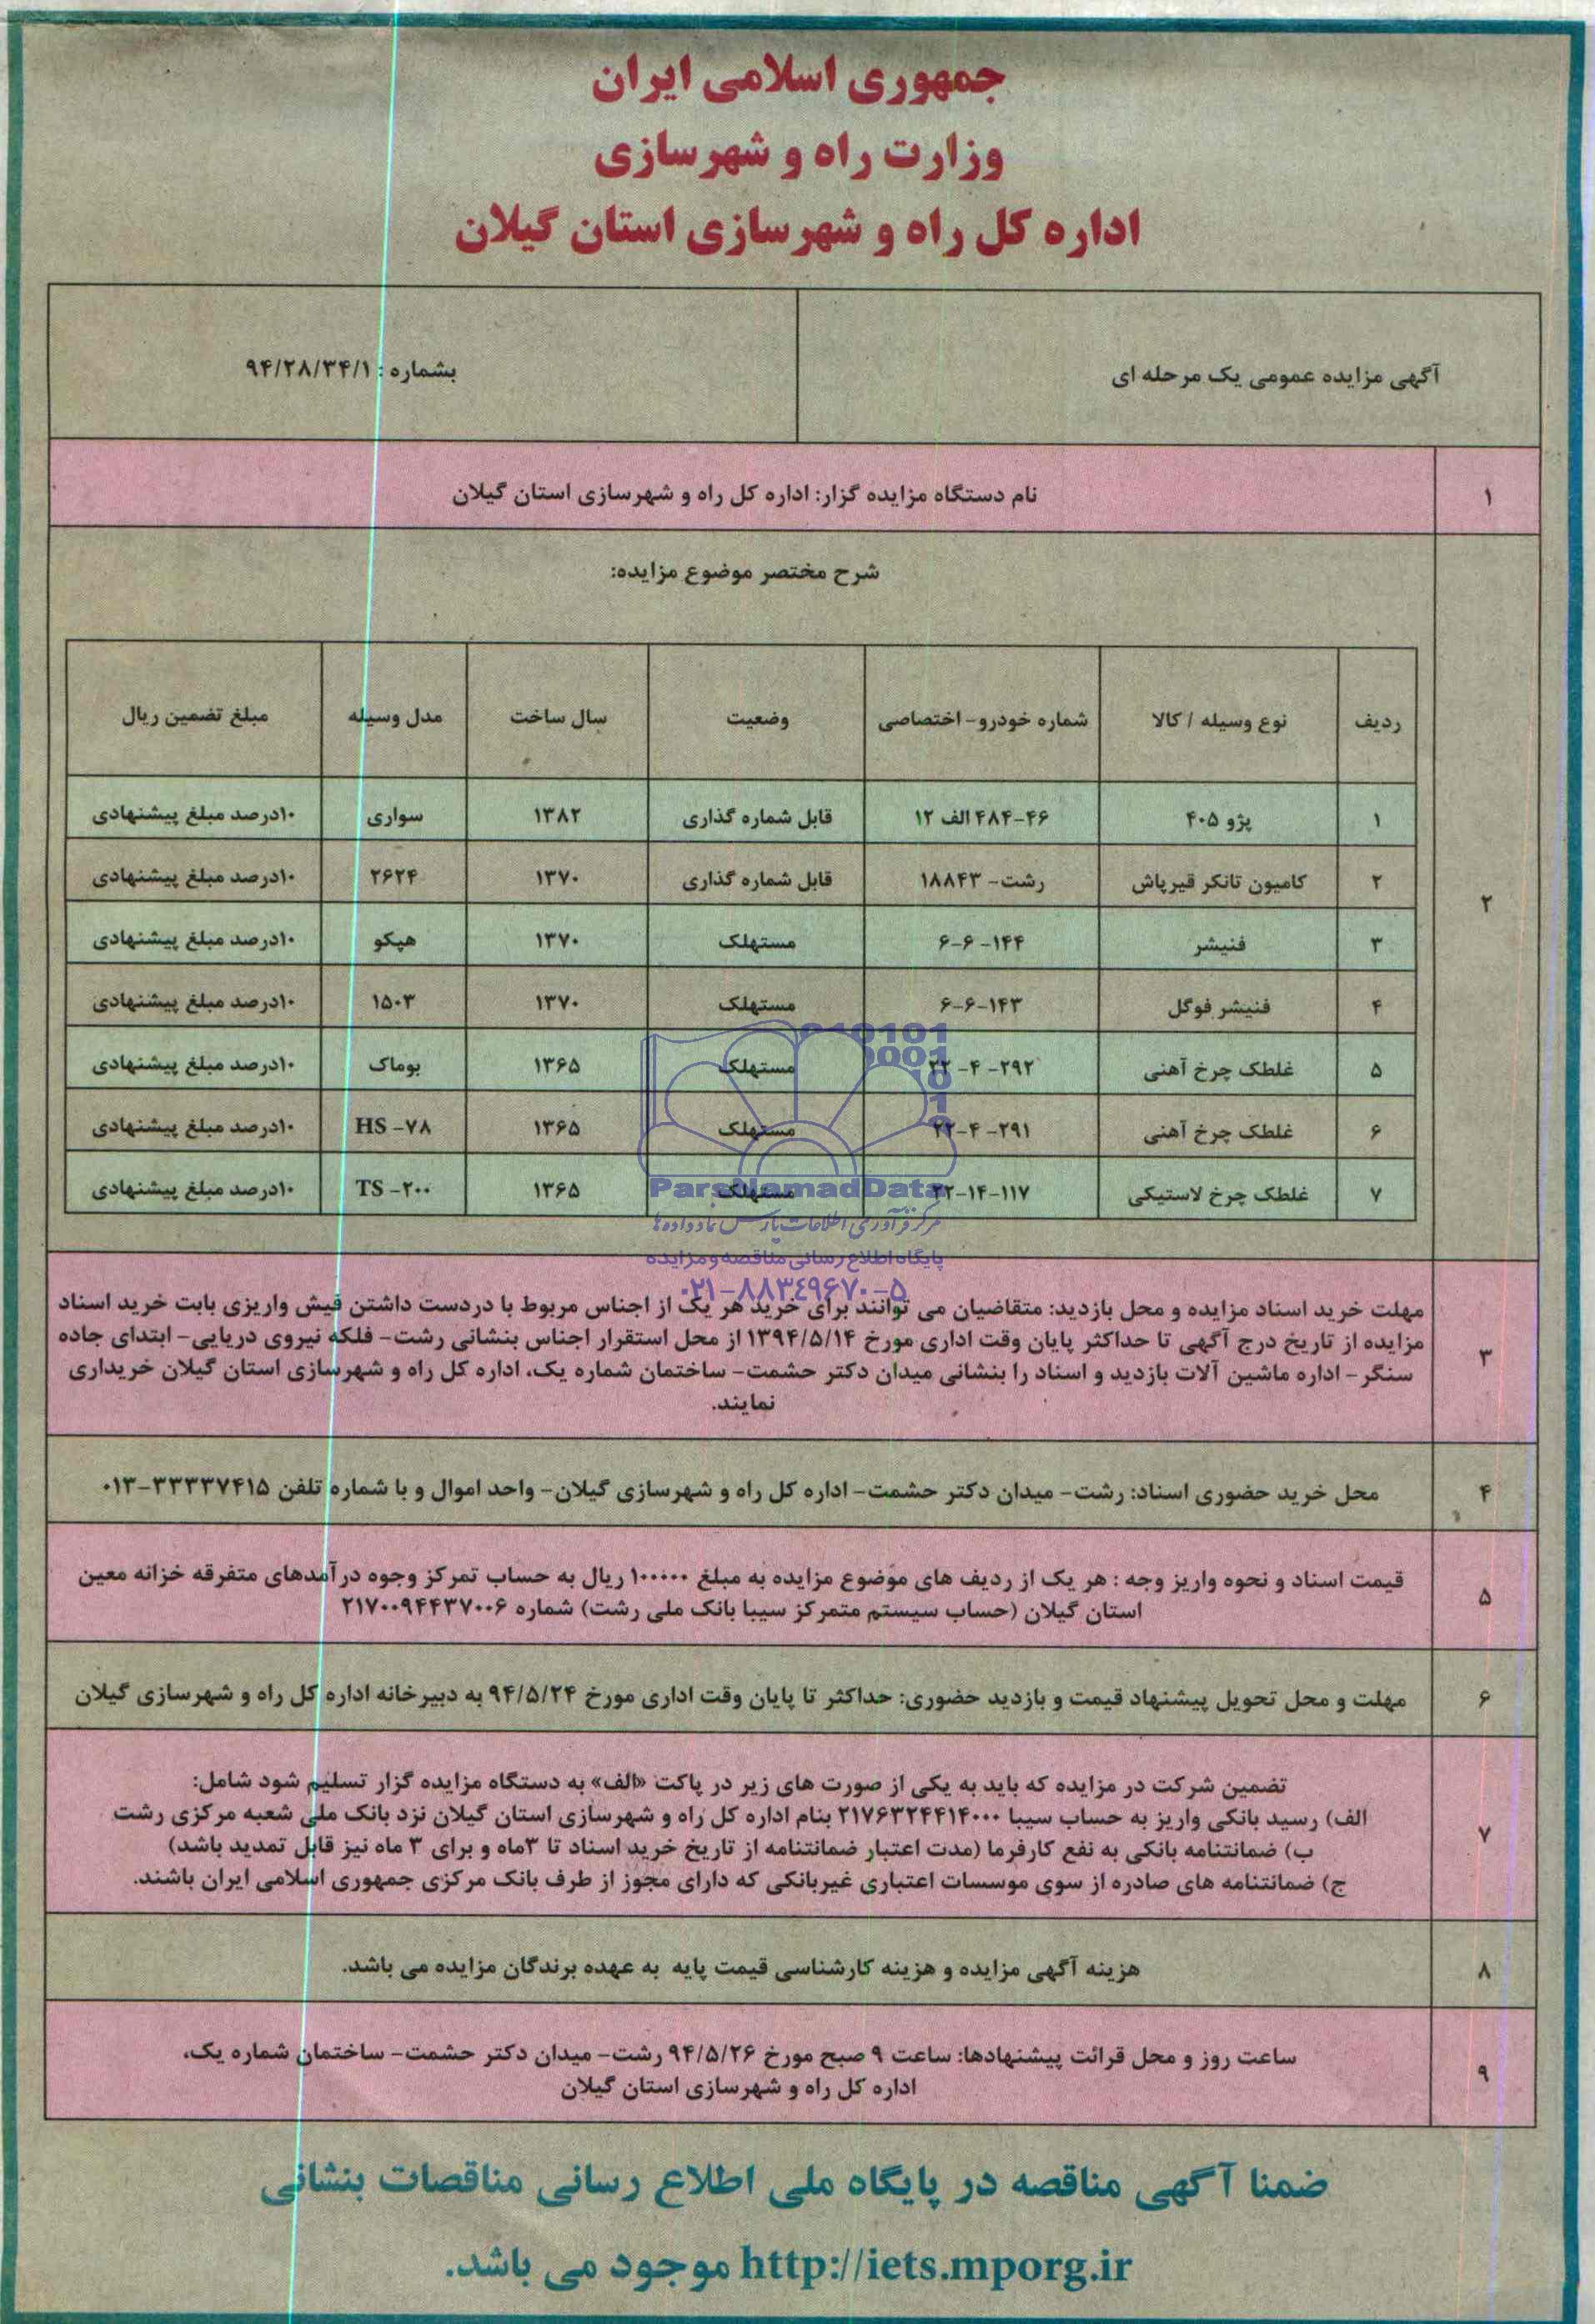 جمهوری اسلامی ایران
وزارت راه و شهرسازی
اداره کل راه و شهرسازی استان گیلان
آگهی مزایده عمومی یک مرحله ای
بشماره : ۹۴/۲۸/۳۴/۱
۱ نام دستگاه مزایده گزار: اداره کل راه و شهرسازی استان گیلان
۲ شرح مختصر موضوع مزایده:
ردیف نوع وسیله / کالا شماره خودرو- اختصاصی وضعیت سال ساخت مدل وسیله مبلغ تضمین ریال
۱ پژو ۴۰۵ ۴۶-۴۸۴ الف ۱۲ قابل شماره گذاری ۱۳۸۲ سواری ۱۰درصد مبلغ پیشنهادی
۲ کامیون تانکر قیرپاش رشت- ۱۸۸۴۳ قابل شماره گذاری ۱۳۷۰ ۲۶۲۴ ۱۰درصد مبلغ پیشنهادی
۳ فنیشر ۱۴۴- ۶-۶ مستهلک ۱۳۷۰ هپکو ۱۰درصد مبلغ پیشنهادی
۴ فنیشر فوگل ۱۴۳-۶-۶ مستهلک ۱۳۷۰ ۱۵۰۳ ۱۰درصد مبلغ پیشنهادی
۵ غلطک چرخ آهنی ۲۹۲- ۴- ۲۲ مستهلک ۱۳۶۵ بوماک ۱۰درصد مبلغ پیشنهادی
۶ غلطک چرخ آهنی ۲۹۱- ۴-۲۲ مستهلک ۱۳۶۵ HS -۷۸ ۱۰درصد مبلغ پیشنهادی
۷ غلطک چرخ لاستیکی ۱۱۷-۱۴-۲۲ مستهلک ۱۳۶۵ TS -۲۰۰ ۱۰درصد مبلغ پیشنهادی
ParsNamadData
مرکز فرآوری اطلاعات پارس نماد داده ها
پایگاه اطلاع رسانی مناقصه و مزایده
۰۲۱-۸۸۳۴۹۶۷۰-۵
۳ مهلت خرید اسناد مزایده و محل بازدید: متقاضیان می توانند برای خرید هر یک از اجناس مربوط با دردست داشتن فیش واریزی بابت خرید اسناد
مزایده از تاریخ درج آگهی تا حداکثر پایان وقت اداری مورخ ۱۳۹۴/۵/۱۴ از محل استقرار اجناس بنشانی رشت- فلکه نیروی دریایی- ابتدای جاده
سنگر- اداره ماشین آلات بازدید و اسناد را بنشانی میدان دکتر حشمت- ساختمان شماره یک، اداره کل راه و شهرسازی استان گیلان خریداری
نمایند.
۴ محل خرید حضوری اسناد: رشت- میدان دکتر حشمت- اداره کل راه و شهرسازی گیلان- واحد اموال و با شماره تلفن ۳۳۳۳۷۴۱۵-۰۱۳
۵ قیمت اسناد و نحوه واریز وجه : هر یک از ردیف های موضوع مزایده به مبلغ ۱۰۰۰۰۰ ریال به حساب تمرکز وجوه درآمدهای متفرقه خزانه معین
استان گیلان (حساب سیستم متمرکز سیبا بانک ملی رشت) شماره ۲۱۷۰۰۹۴۴۳۷۰۰۶
۶ مهلت و محل تحویل پیشنهاد قیمت و بازدید حضوری: حداکثر تا پایان وقت اداری مورخ ۹۴/۵/۲۴ به دبیرخانه اداره کل راه و شهرسازی گیلان
۷ تضمین شرکت در مزایده که باید به یکی از صورت های زیر در پاکت «الف» به دستگاه مزایده گزار تسلیم شود شامل:
الف) رسید بانکی واریز به حساب سیبا ۲۱۷۶۳۲۴۴۱۴۰۰۰ بنام اداره کل راه و شهرسازی استان گیلان نزد بانک ملی شعبه مرکزی رشت
ب) ضمانتنامه بانکی به نفع کارفرما (مدت اعتبار ضمانتنامه از تاریخ خرید اسناد تا ۳ماه و برای ۳ ماه نیز قابل تمدید باشد)
ج) ضمانتنامه های صادره از سوی موسسات اعتباری غیربانکی که دارای مجوز از طرف بانک مرکزی جمهوری اسلامی ایران باشند.
۸ هزینه آگهی مزایده و هزینه کارشناسی قیمت پایه به عهده برندگان مزایده می باشد.
۹ ساعت روز و محل قرائت پیشنهادها: ساعت ۹ صبح مورخ ۹۴/۵/۲۶ رشت- میدان دکتر حشمت- ساختمان شماره یک،
اداره کل راه و شهرسازی استان گیلان
ضمنا آگهی مناقصه در پایگاه ملی اطلاع رسانی مناقصات بنشانی
http://iets.mporg.ir موجود می باشد.